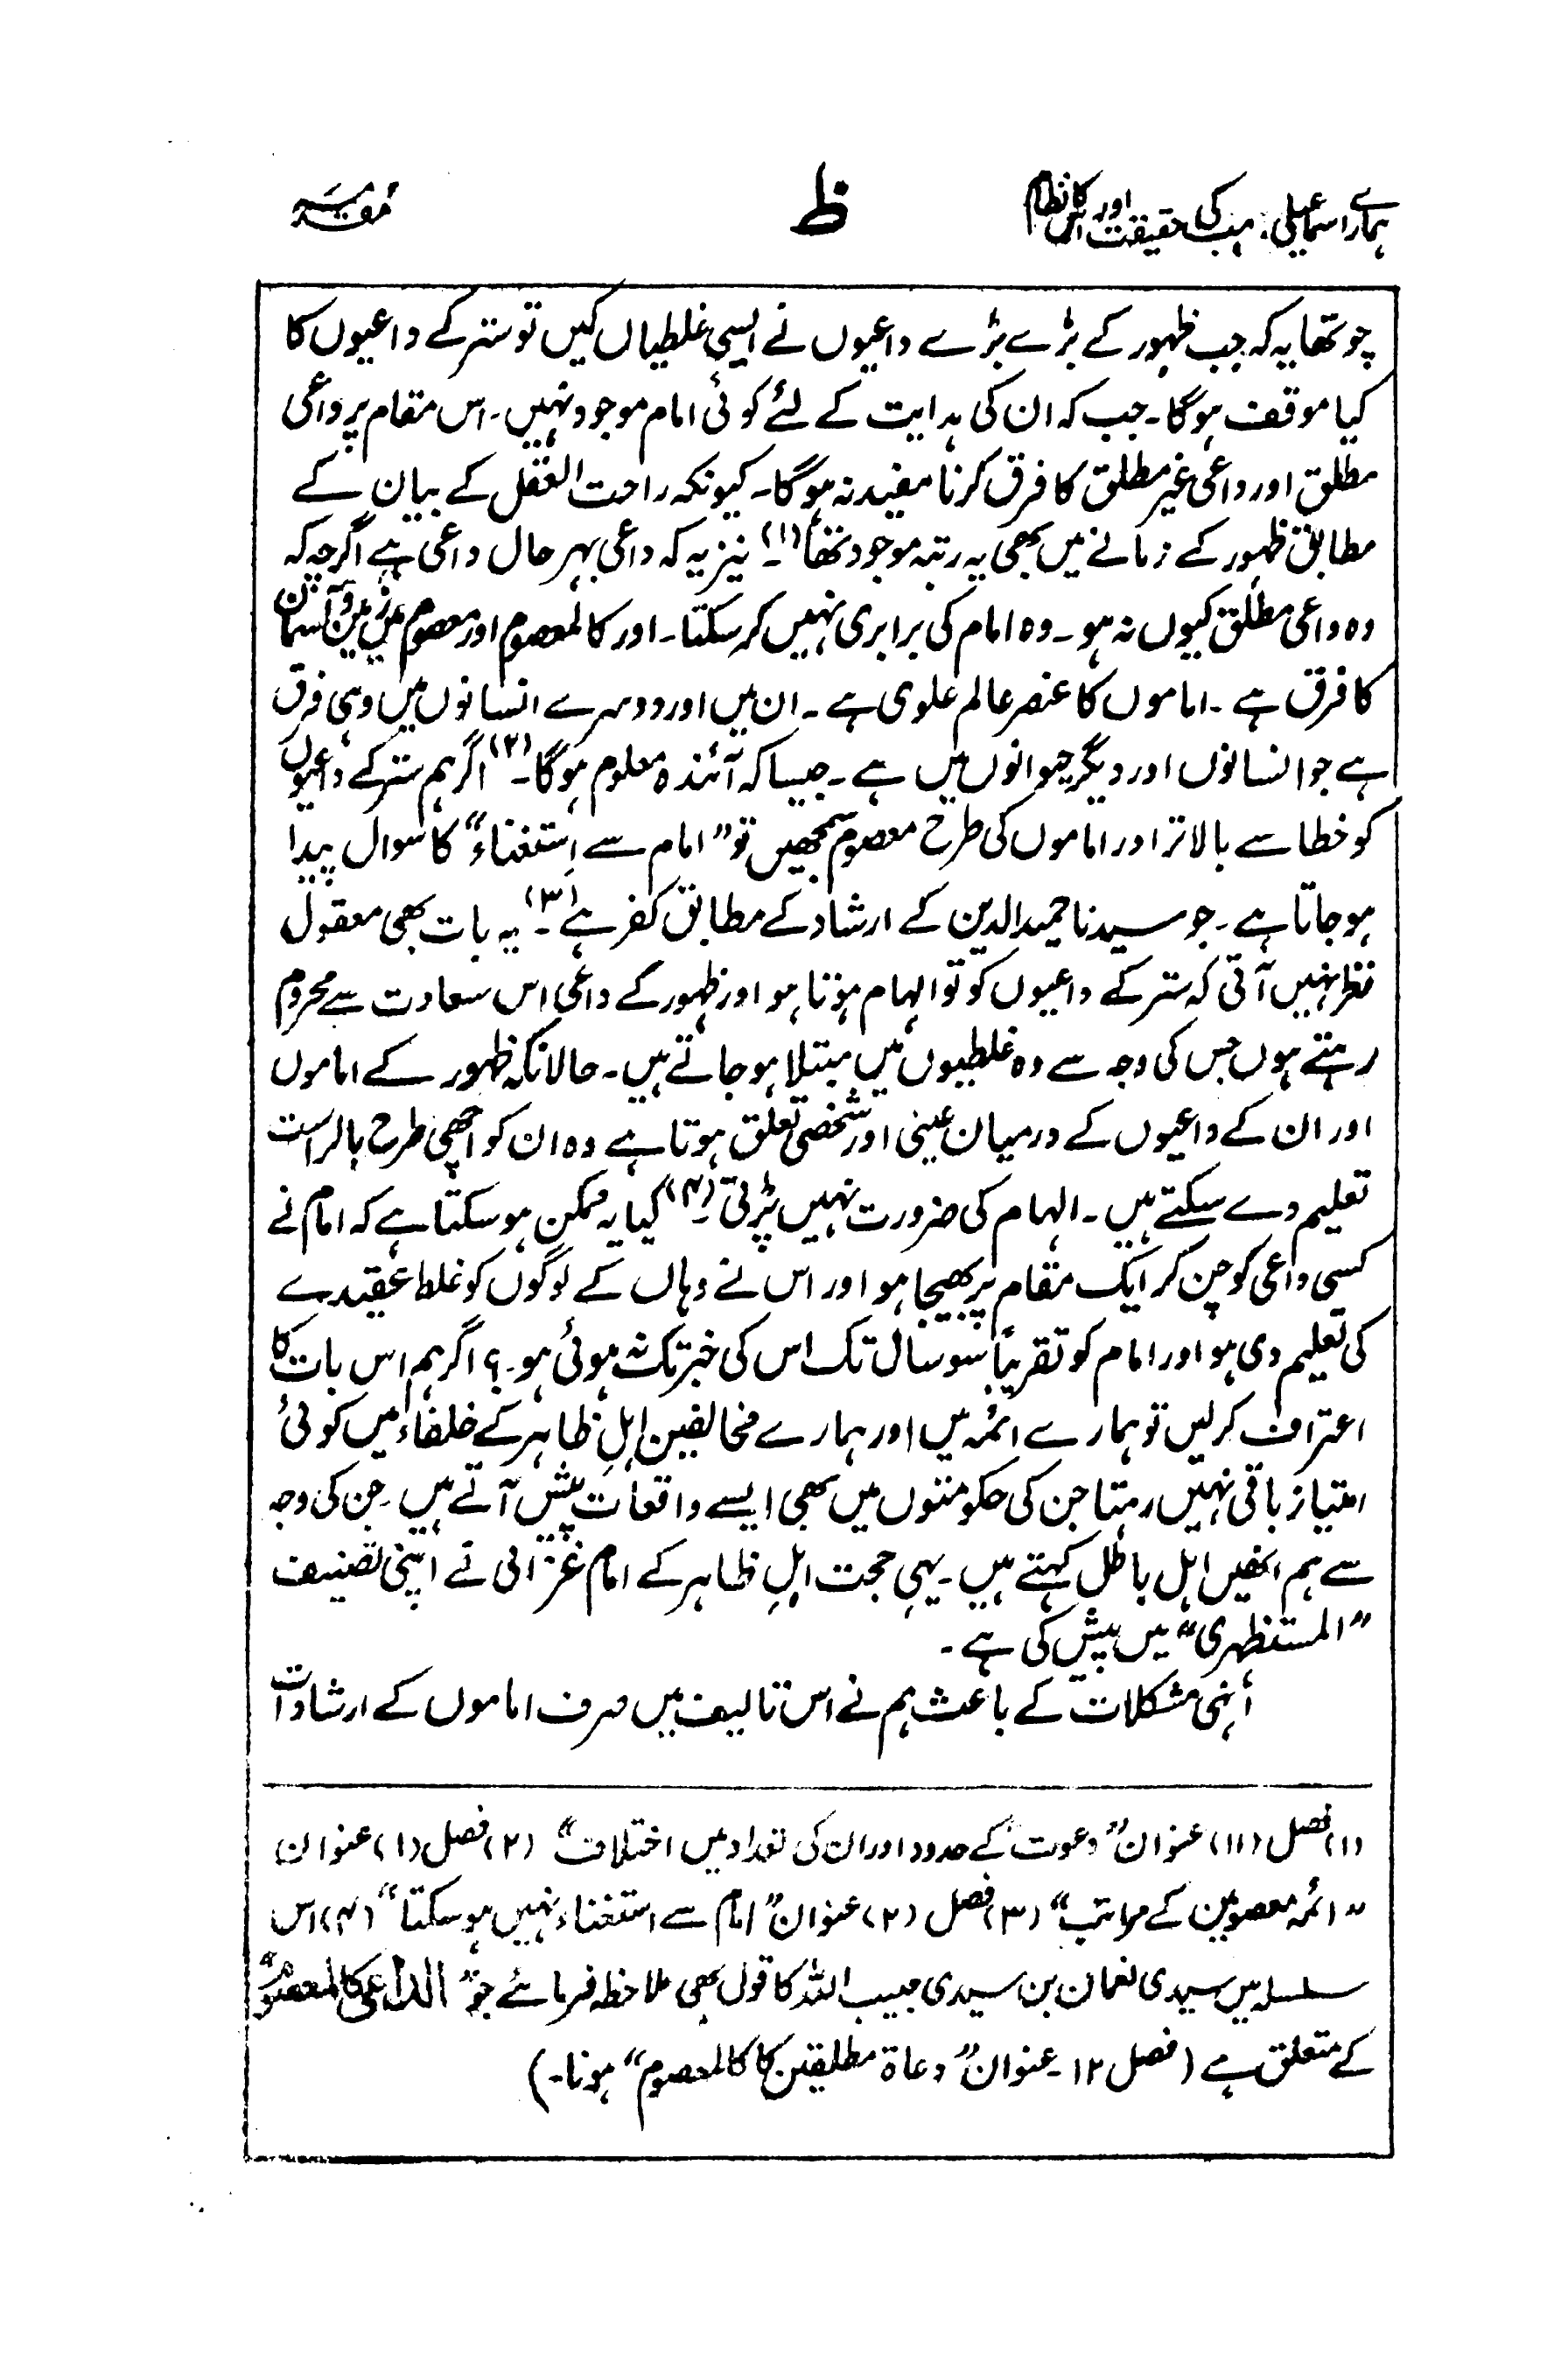 ہمارے اسماعیلی مذہب کی حقیقت اور اس کا نظام
ظ
مقدمہ
چوتھا یہ کہ جب ظہور کے بڑے بڑے داعیوں نے ایسی غلطیاں کیں تو ستر کے داعیوں کا
کیا موقف ہوگا۔ جب کہ ان کی ہدایت کے لئے کوئی امام موجود نہیں۔ اس مقام پر داعی
مطلق اور داعی غیر مطلق کا فرق کرنا مفید نہ ہوگا۔ کیونکہ راحت العقل کے بیان کے
مطابق ظہور کے زمانے میں بھی یہ رتبہ موجود تھا (۱)۔ نیز یہ کہ داعی بہر حال داعی ہے اگرچہ کہ
وہ داعی مطلق کیوں نہ ہو۔ وہ امام کی برابری نہیں کر سکتا۔ اور کالمعصوم اور معصوم میں زمین و آسمان
کا فرق ہے۔ اماموں کا عنصر عالم علوی ہے۔ ان میں اور دوسرے انسانوں میں وہی فرق
ہے جو انسانوں اور دیگر حیوانوں میں ہے۔ جیسا کہ آئندہ معلوم ہوگا۔ (۲) اگر ہم ستر کے داعیوں
کو خطا سے بالاتر اور اماموں کی طرح معصوم سمجھیں تو ”امام سے اِستغناء“ کا سوال پیدا
ہو جاتا ہے۔ جو سیدنا حمید الدین کے ارشاد کے مطابق کفر ہے (۳)۔ یہ بات بھی معقول
نظر نہیں آتی کہ ستر کے داعیوں کو تو الہام ہوتا ہو اور ظہور کے داعی اس سعادت سے محروم
رہتے ہوں جس کی وجہ سے وہ غلطیوں میں مبتلا ہو جاتے ہیں۔ حالانکہ ظہور کے اماموں
اور ان کے داعیوں کے درمیان عینی اور شخصی تعلق ہوتا ہے وہ ان کو اچھی طرح بالراست
تعلیم دے سکتے ہیں۔ الہام کی ضرورت نہیں پڑتی (۴)۔ کیا یہ ممکن ہو سکتا ہے کہ امام نے
کسی داعی کو چن کر ایک مقام پر بھیجا ہو اور اس نے وہاں کے لوگوں کو غلط عقیدے
کی تعلیم دی ہو اور امام کو تقریباً سو سال تک اس کی خبر تک نہ ہوئی ہو۔؟ اگر ہم اس بات کا
اعتراف کرلیں تو ہمارے ائمہ میں اور ہمارے مخالفین اہلِ ظاہر کے خلفاء میں کوئی
امتیاز باقی نہیں رہتا جن کی حکومتوں میں بھی ایسے واقعات پیش آتے ہیں۔ جن کی وجہ
سے ہم انھیں اہل باطل کہتے ہیں۔ یہی حجت اہلِ ظاہر کے امام غزالی نے اپنی تصنیف
”المستظہری“ میں پیش کی ہے۔
اُنہی مشکلات کے باعث ہم نے اس تالیف میں صرف اماموں کے ارشادات
(۱) فصل (۱۱) عنوان ”دعوت کے حدود اور ان کی تعداد میں اختلاف“ (۲) فصل (۱) عنوان
”ائمہ معصومین کے مراتب“ (۳) فصل (۲) عنوان ”امام سے استغناء نہیں ہو سکتا“ (۴) اس
سلسلہ میں سیدی نعمان بن سیدی حبیب اللہ کا قول بھی ملاحظہ فرمائے جو ”الداعی کالمعصوم“
کے متعلق ہے (فصل ۱۲۔ عنوان ”دعاۃ مطلقین کا کالمعصوم“ ہونا۔)